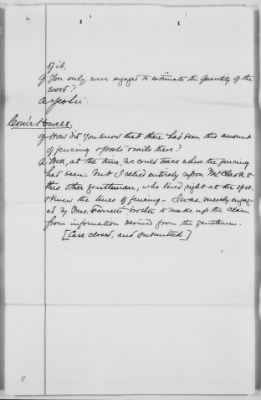 of it.
Q You only were engaged to estimate the quantity of the
wood?
A yes sir.
Com'r Howell
Q How did you know that there had been this amount
of fencing & posts & rails there?
A Well, at the time, we could trace where the fencing
had been. But I relied entirely upon Mr Clark &
this other gentleman, who lived right at the spot
& knew the lines of fencing - I was merely engag-
ed by Mrs. brother to make up the claim
from information derived from the gentlemen.
[Case closed, and submitted]